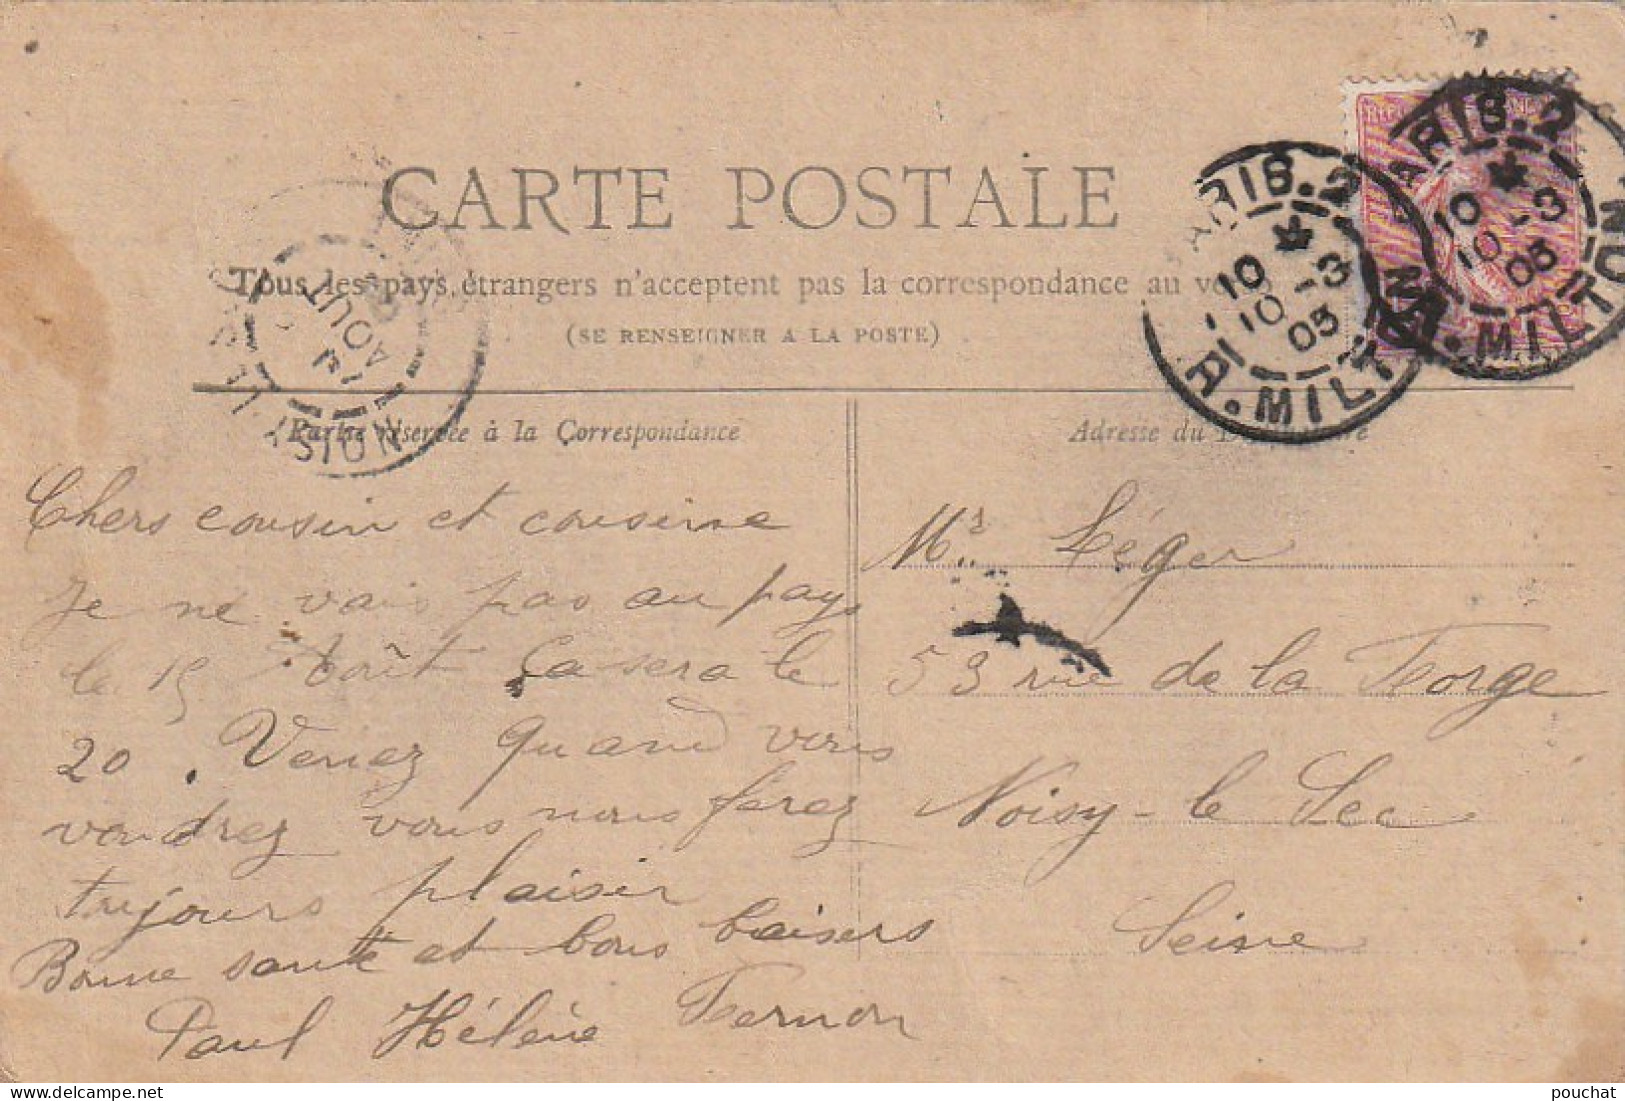 CARTE POSTALE
Tous les pays étrangers n'acceptent pas la correspondance au verso
(SE RENSEIGNER A LA POSTE)
Partie réservée à la Correspondance
Adresse du Destinataire
Chers cousin et cousine
Je ne vais pas au pays
le 15 Août Ça sera le
20. Venez quand vous
voudrez vous nous ferez
tujours plaisir
Bonne santé et bons baisers
Paul Hélène Fernon
Mr Léger
53 rue de la Forge
Noisy-le Sec
Seine
PARIS.2
10
10 -3
05
R. MILTON
PARIS.2
10
10 -3
05
R. MILTON
NOISY LE SEC
AOUT
pouchat